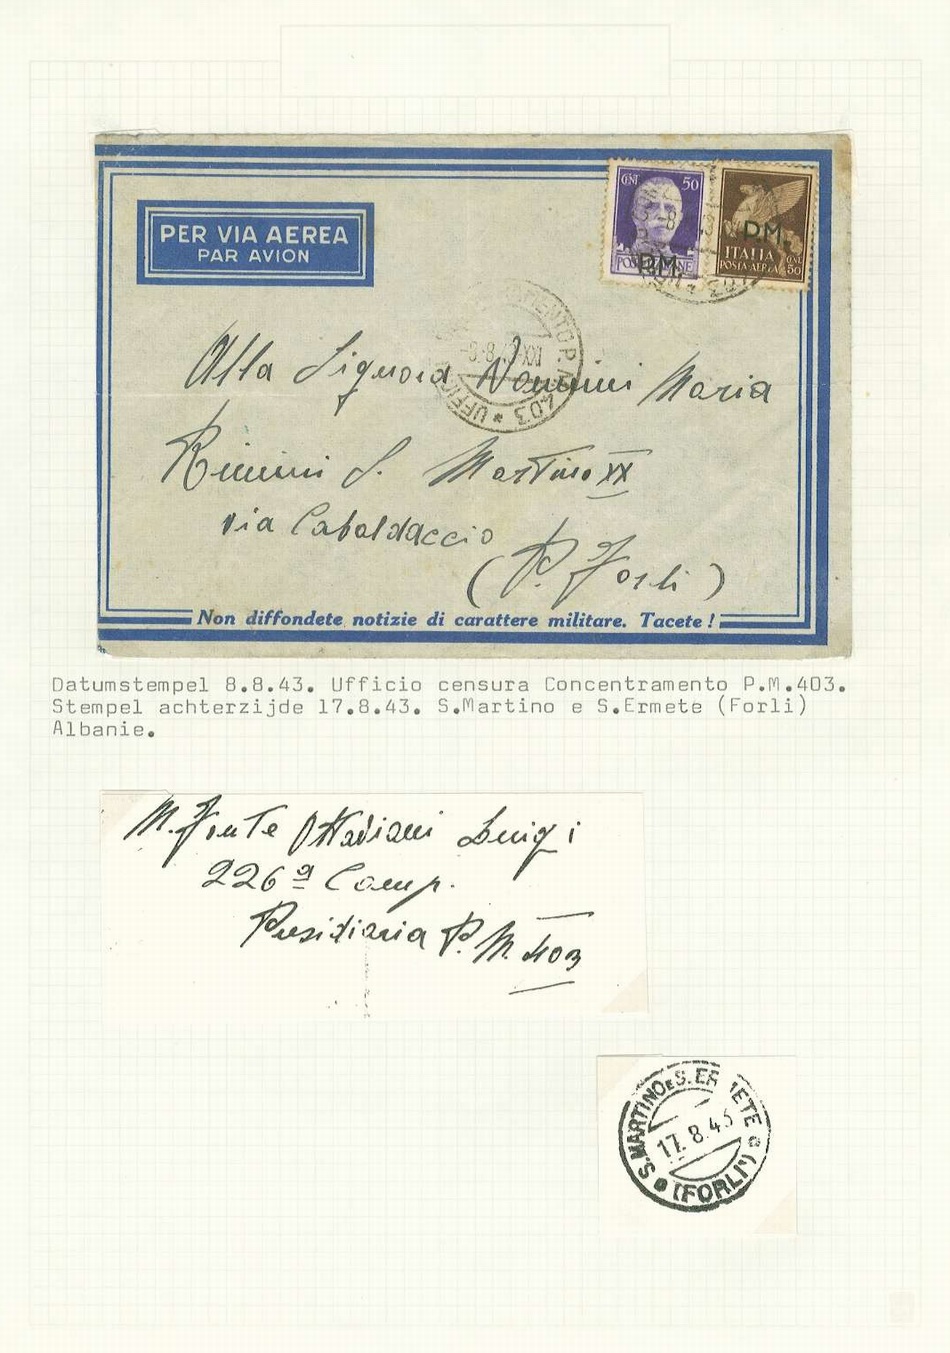 PER VIA AEREA
PAR AVION
CENT 50
P.M.
POSTE
P.M.
ITALIA
POSTA-AEREA CENT 50
UFFIC MENTO P.M. 403 *
8·8·43 XXI
Alla Signora Vannini Maria
Rimini S. Martino XX
via Cabaldaccio
(P. Forli)
Non diffondete notizie di carattere militare. Tacete!
Datumstempel 8.8.43. Ufficio censura Concentramento P.M.403.
Stempel achterzijde 17.8.43. S.Martino e S.Ermete (Forli)
Albanie.
M. Fonte Ottaviani Luigi
226ª Comp.
Presidiaria P.M. 403
S.MARTINO E S. ER METE
17.8.43
(FORLI')